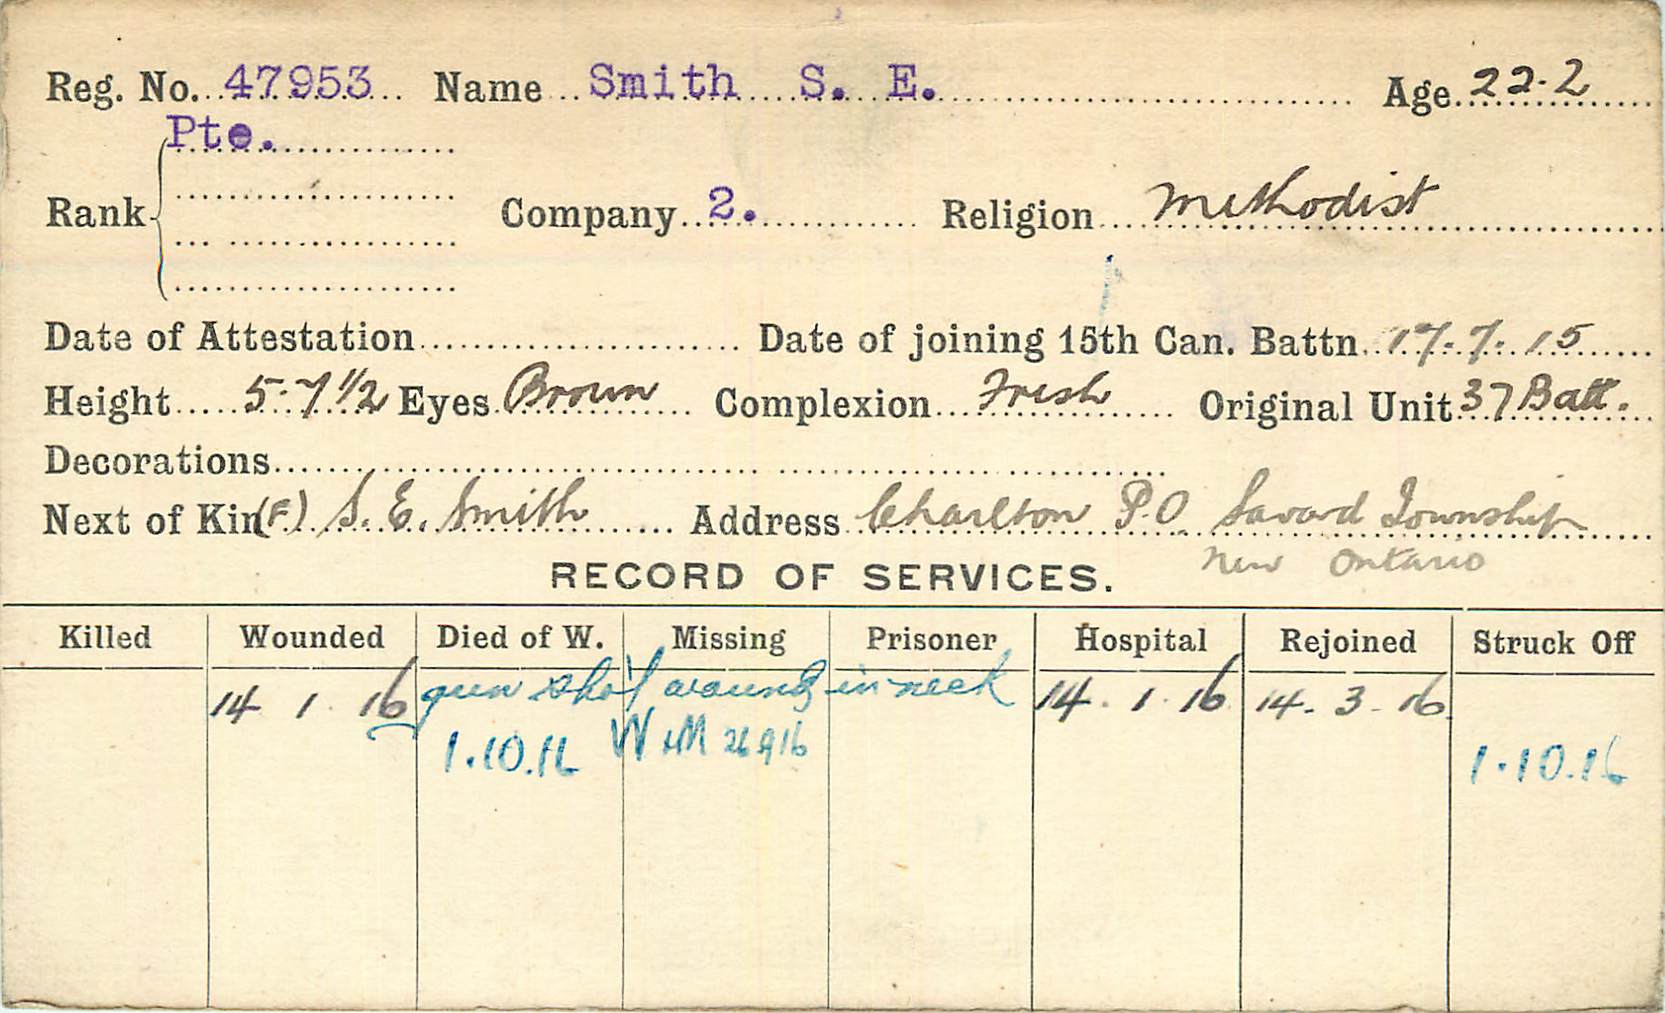 Reg. No. 47953 Name Smith S. E. Age 22-2
Pte.
Rank Company 2. Religion Methodist
Date of Attestation Date of joining 15th Can. Battn. 17. 7. 15
Height 5-7 1/2 Eyes Brown Complexion Fresh Original Unit 37 Batt.
Decorations
Next of Kin (F) S. E. Smith Address Charlton P.O. Savard Township
New Ontario
RECORD OF SERVICES.
Killed Wounded Died of W. Missing Prisoner Hospital Rejoined Struck Off
14 1 16 gun shot wound in neck 14. 1. 16 14. 3 - 16
1.10.16 W & M 26 9 16 1.10.16